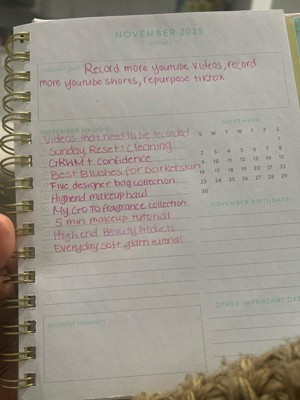 NOVEMBER 2025
Record more youtube videos, record
more youtube shorts, repurpose tiktok
NOVEMBER TO-DO'S
Videos that need to be recorded
Sunday Reset: Cleaning
GRWM + Confidence
Best Blushes for Darker skin
Five designer bag collection
Highend makeup haul
My Go To fragrance collection
5 min makeup tutorial
High end Beauty Products
Everyday soft glam tutorial
NOVEMBER
S M T W T F S
1
2 3 4 5 6 7 8
9 10 11 12 13 14 15
16 17 18 19 20 21 22
23 24 25 26 27 28 29
30
NOVEMBER BIRTHDAYS
OTHER IMPORTANT DATES